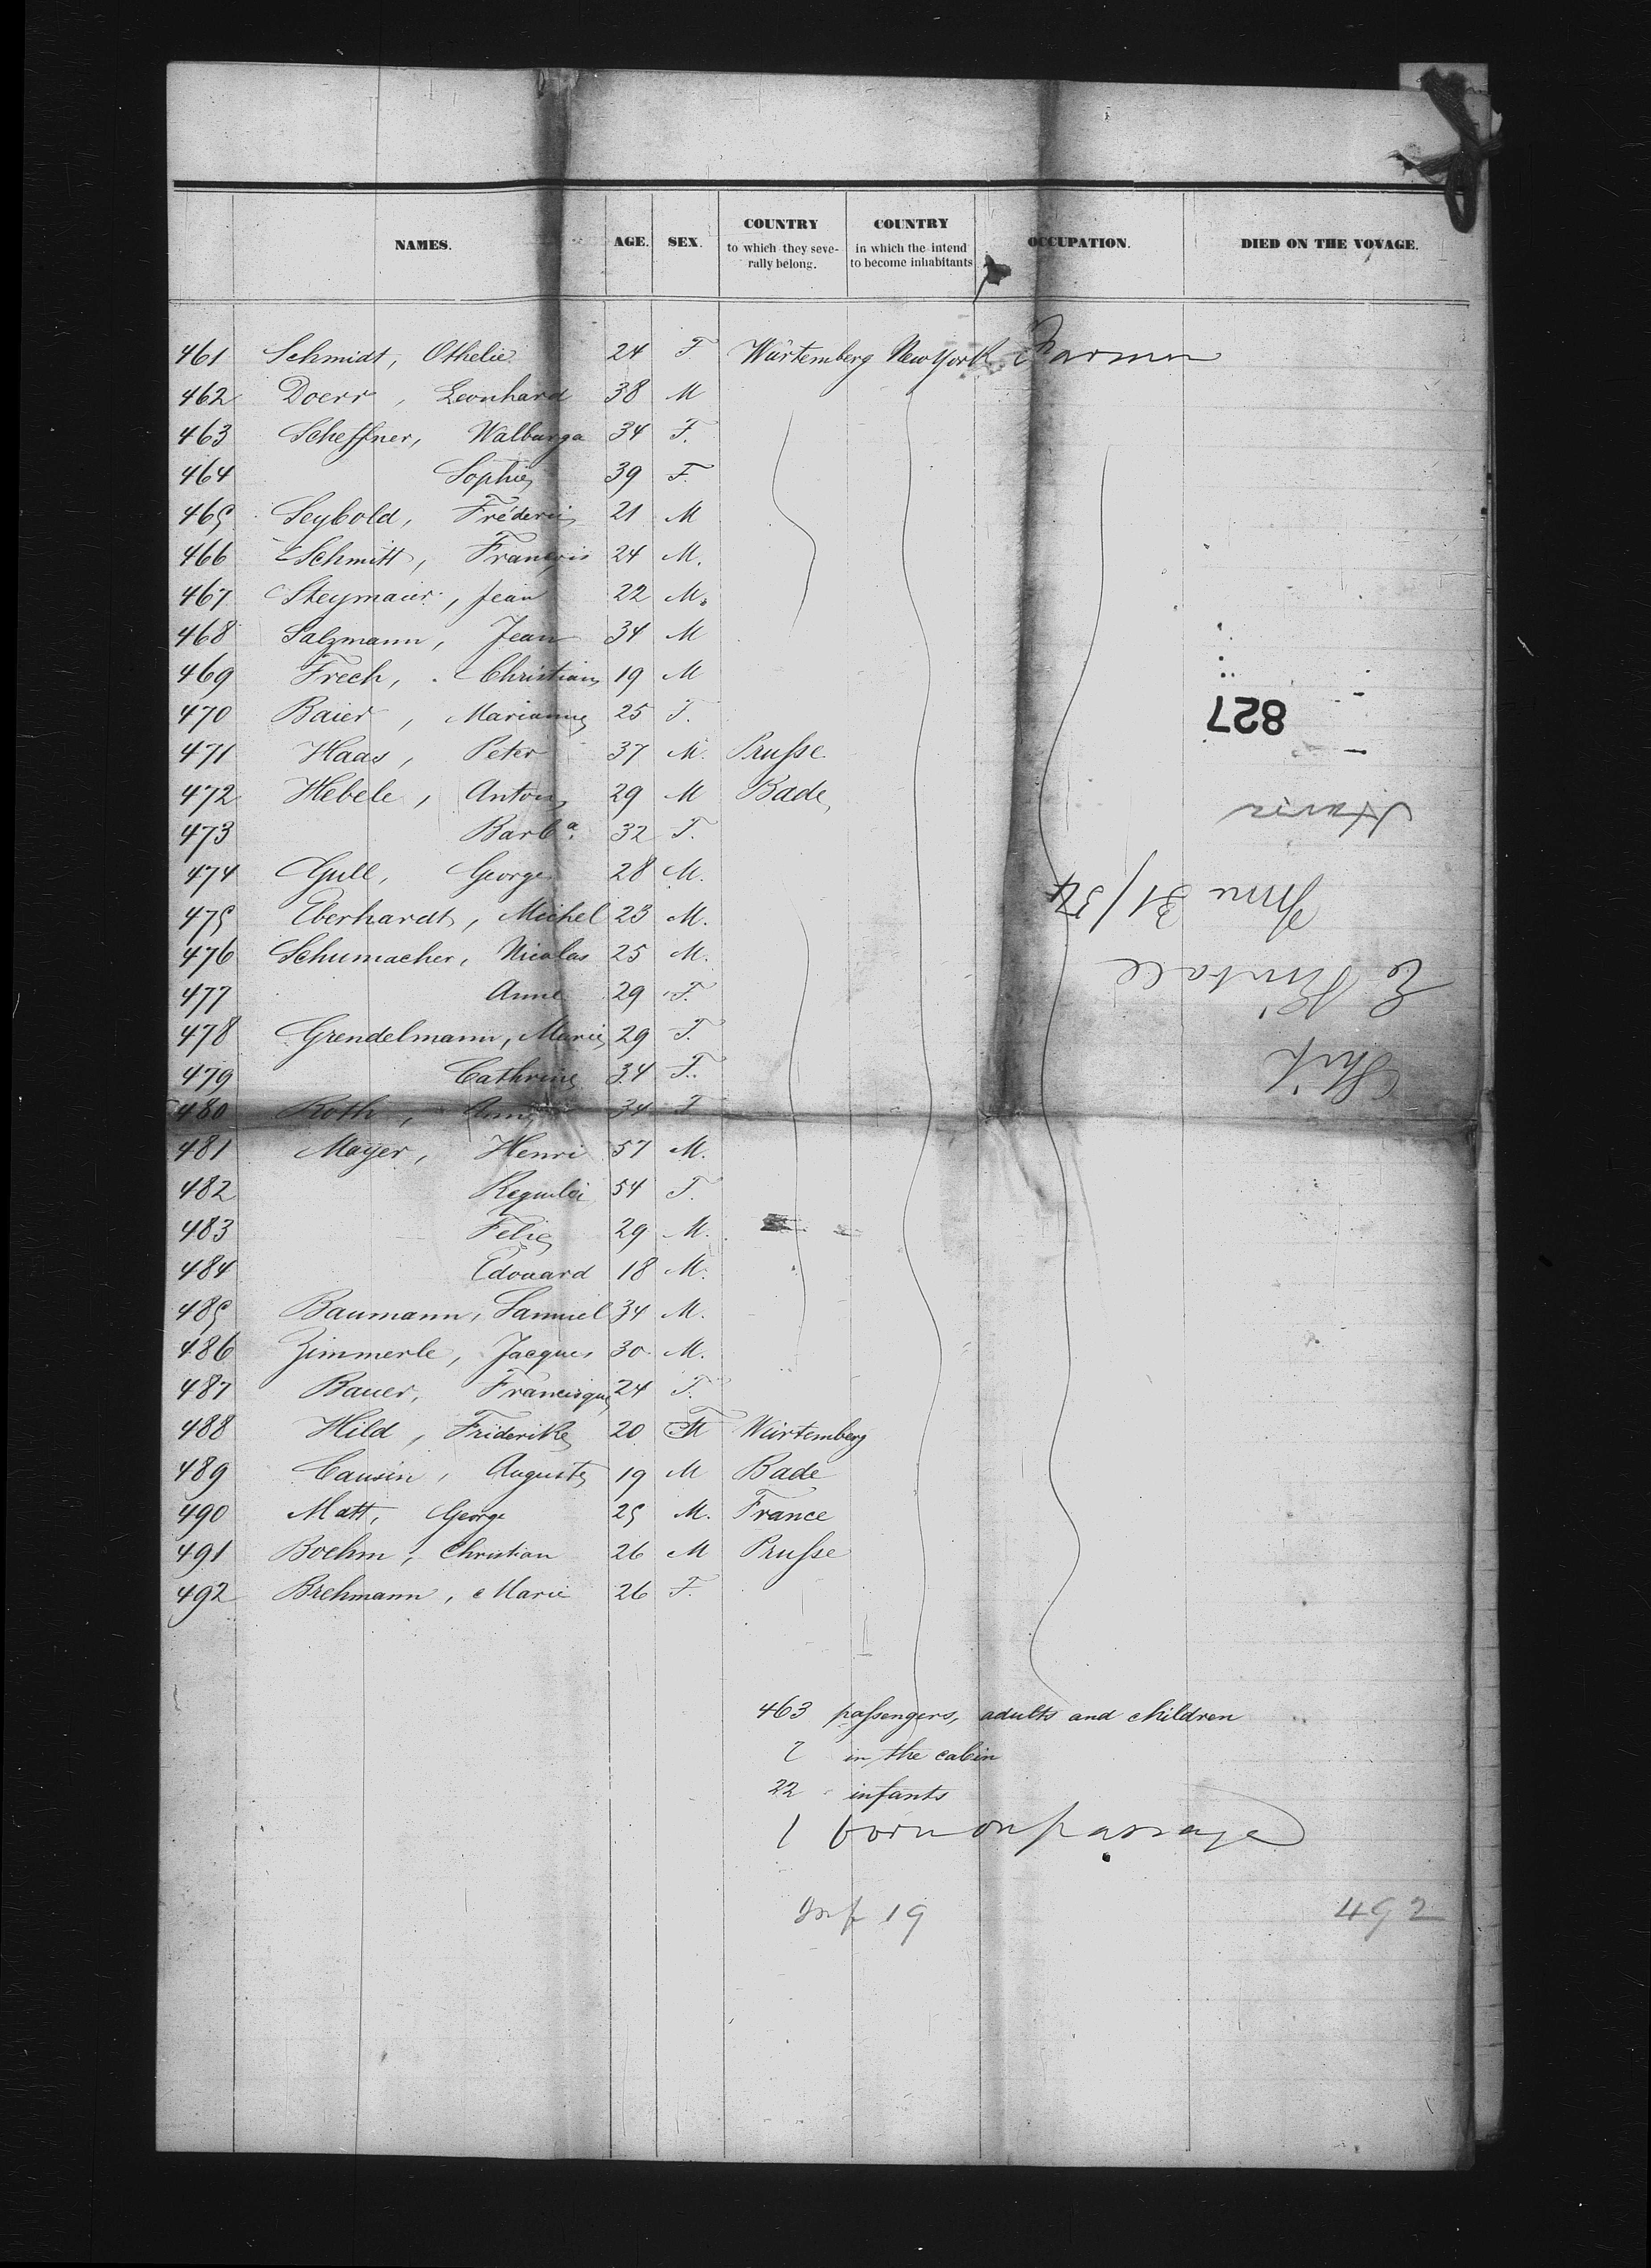 NAMES. AGE. SEX. COUNTRY to which they seve- rally belong. COUNTRY in which the intend to become inhabitants OCCUPATION. DIED ON THE VOYAGE.
461 Schmidt, Othelie 24 F Würtemberg New York Farmer
462 Doerr, Leonhard 38 M
463 Scheffner, Walburga 34 F.
464 Sophie 39 F.
465 Seybold, Fréderic 21 M
466 Schmitt, François 24 M.
467 Steymaier, Jean 22 M.
468 Salzmann, Jean 34 M
469 Frech, Christian 19 M
470 Baier, Marianne 25 F.
471 Haas, Peter 37 M. Prusse
472 Hebele, Anton 29 M Bade
473 Barba. 32 F.
474 Gull, George 28 M.
475 Eberhardt, Michel 23 M.
476 Schumacher, Nicolas 25 M.
477 Anne 29 F.
478 Grendelmann, Marie 29 F.
479 Cathrine 34 F.
480 Roth, Anne 34 F
481 Mayer, Henri 57 M.
482 Regula 54 F.
483 Felix 29 M.
484 Edouard 18 M.
485 Baumann, Samuel 34 M.
486 Zimmerle, Jacques 30 M.
487 Bauer, Francisque 24 F.
488 Hild, Friderike 20 F Würtemberg
489 Causin, Auguste 19 M Bade
490 Matt, George 25 M. France
491 Boehm, Christian 26 M Prusse
492 Brehmann, Marie 26 F.
463 passengers, adults and children
7 in the cabin
22 infants
1 born on passage
Inf 19 492
Ship
31/54
Havre
827